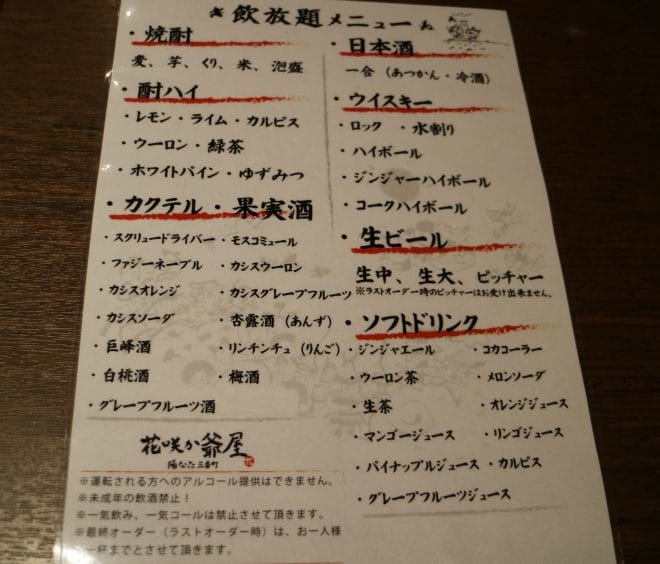 飲放題メニュー
・焼酎
麦、芋、くり、米、泡盛
・酎ハイ
・レモン・ライム・カルピス
・ウーロン・緑茶
・ホワイトパイン・ゆずみつ
・カクテル・果実酒
・スクリュードライバー・モスコミュール
・ファジーネーブル ・カシスウーロン
・カシスオレンジ ・カシスグレープフルーツ
・カシスソーダ ・杏露酒(あんず)
・巨峰酒 ・リンチンチュ(りんご)
・白桃酒 ・梅酒
・グレープフルーツ酒
花咲か爺屋
陽なた三番町
※運転される方へのアルコール提供はできません。
※未成年の飲酒禁止!
※一気飲み、一気コールは禁止させて頂きます。
※最終オーダー(ラストオーダー時)は、お一人様
一杯までとさせて頂きます。
・日本酒
一合(あつかん・冷酒)
・ウイスキー
・ロック ・水割り
・ハイボール
・ジンジャーハイボール
・コークハイボール
・生ビール
生中、生大、ピッチャー
※ラストオーダー時のピッチャーはお受け出来ません。
・ソフトドリンク
・ジンジャエール ・コカコーラー
・ウーロン茶 ・メロンソーダ
・生茶 ・オレンジジュース
・マンゴージュース ・リンゴジュース
・パイナップルジュース・カルピス
・グレープフルーツジュース